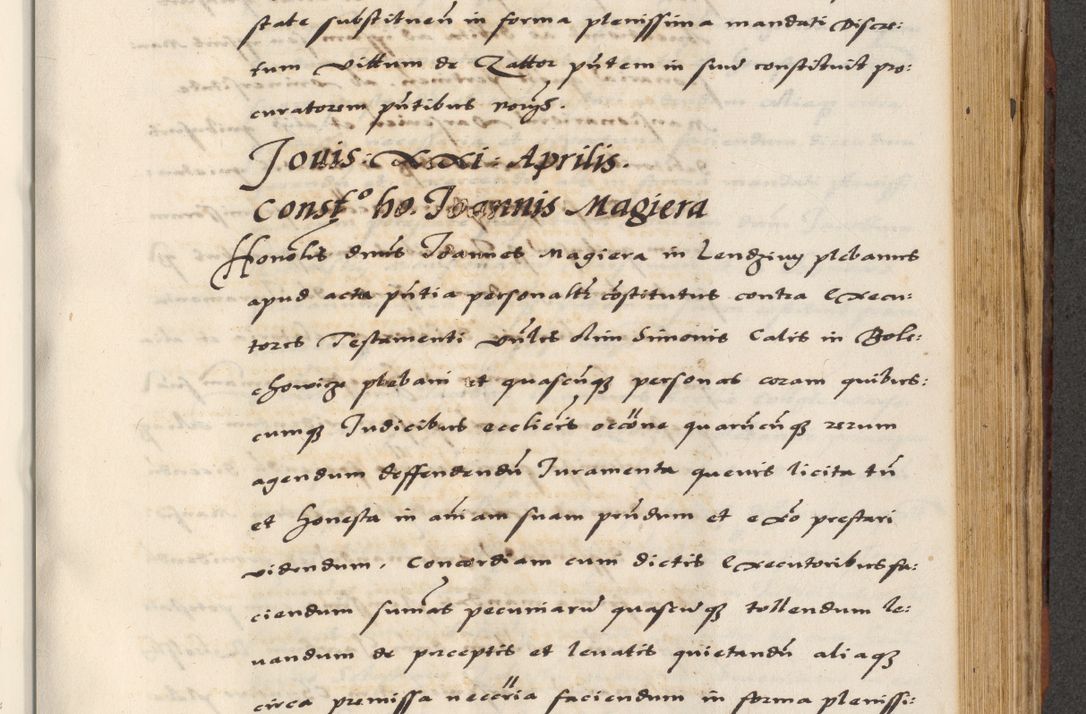 state substituen̄ in forma plenissima mandati Discre:
tum Vittum de Zattor pn̄tem in sua constituit pro:
curatorem pn̄tibus
Jouis: XXI: Aprilis.
Const.º ho. Joannis Magiera
Honolis dnus Joannes Magiera in Lendziny plebanus
apud acta pn̄tia personalr̄ cōstitutus contra Execu:
tores Testamenti vn̄lis olim Simonis Calis in Bole:
chowicze plebani et quascn̄qz personas coram quibus:
cumqz Judicibus ecclicis occōne quarūcn̄qz rerum
agendum deffendendū Juramenta queuis licita tn̄
et honesta in aīam suam prn̄dum et exō prestari
videndum, Concordiam cum dictis Executoribus fa:
ciendum sumās pecuniarū quascuqz tollendum le:
uandum de perceptis et leuatis quietandū aliaqz
circa premissa neccria faciendum in forma plenissi: